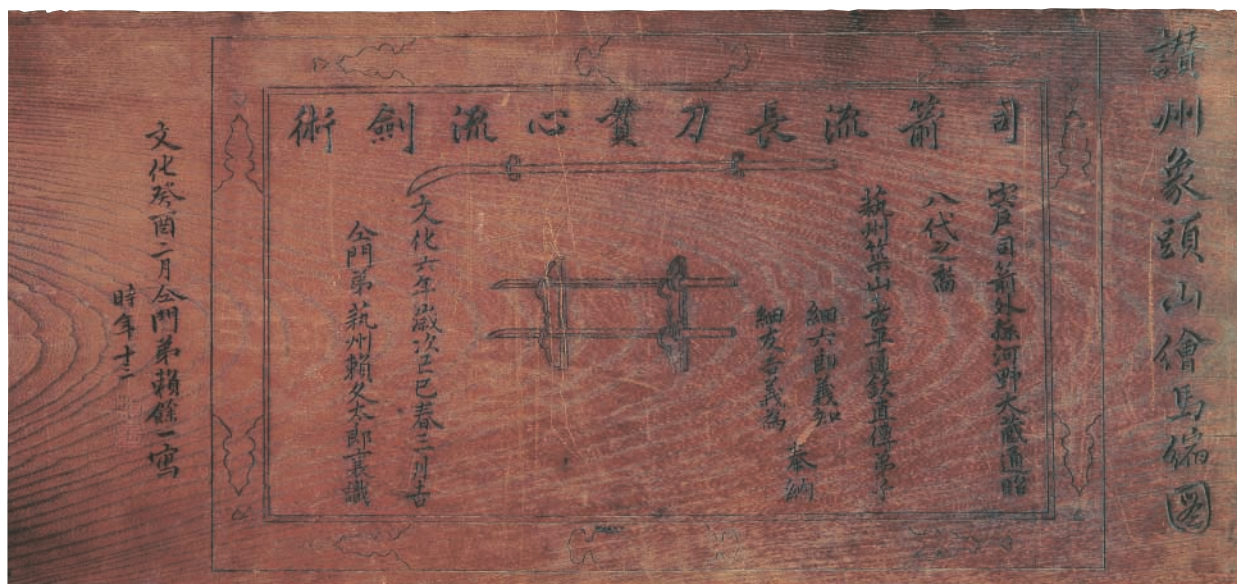 讃州象頭山繪馬縮圖
司箭流長刀貫心流劍術
宍戸司箭外孫河野大藏通昭
八代之裔
藝州築山吉平通欽直傳弟子
細六郎義知
細友吉義為
奉納
文化六年歳次己巳春三月吉
仝門弟藝州頼久太郎襄識
文化癸酉二月仝門弟頼餘一寫
時年十二